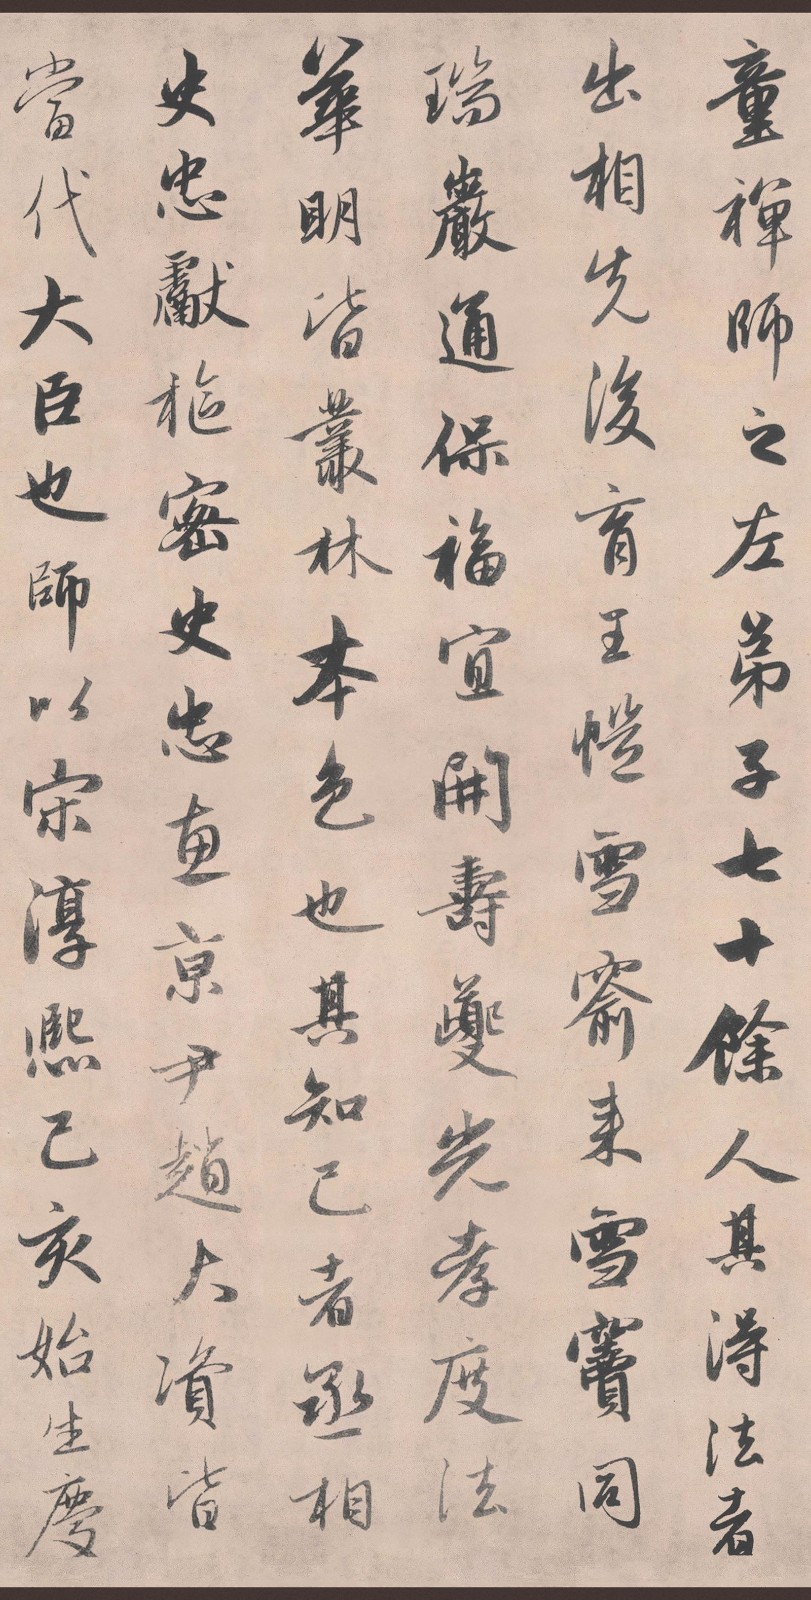 童禅師之左弟子七十餘人其得法者
出相先後育王愷雪窬来雪竇同
瑞巖通保福宜開壽夔光孝度法
華明皆叢林本色也其知己者丞相
史忠獻樞密史忠惠京尹趙大資皆
當代大臣也師以宋淳熙己亥始生慶